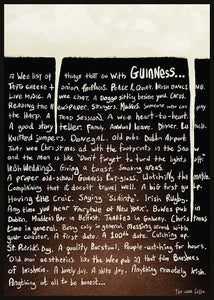 A Wee list of things that go with GUINNESS...
Tayto cheese + onion. Fireplaces. Peace & Quiet. Irish dancing.
Live Music. A wee chat. A Doggo sitting beside you. Chips.
Reading the Newspaper. Singers. Makers. Someone who can play
the Harp. A Trad session. A wee heart-to-heart.
A good story teller. Family. Annual leave. Dinner. Lunch.
Knitted jumpers. Donegal. Old pubs. Dublin Airport.
That wee Christmas ad with the footprints in the Snow
and the man is like 'Don't forget to turn the lights off'
Irish Weddings. Giving a Toast. Smoking areas.
A proper old-school Guinness Tap. Sports. Listening the
Complaining that it doesn't travel well. A big first gulp.
Having the Craic. Saying 'Sláinte'. Irish Rugby.
Any time you hear 'Fairytale of New York'. Bowes pub in
Dublin. Maddens Bar in Belfast. Taaffes in Galway. Christmas
time in general. Being cosy in general. Messing around with
your cousins. A first date. A 100th date. Catching up.
St. Patrick's Day. A quality Barstool. People-watching for hours.
'Old man' aesthetics like the wee pub in that film Banshees
of Inisherin. A lovely day. A shite day. Anything remotely Irish.
Anything at all to be honest...
The Wee